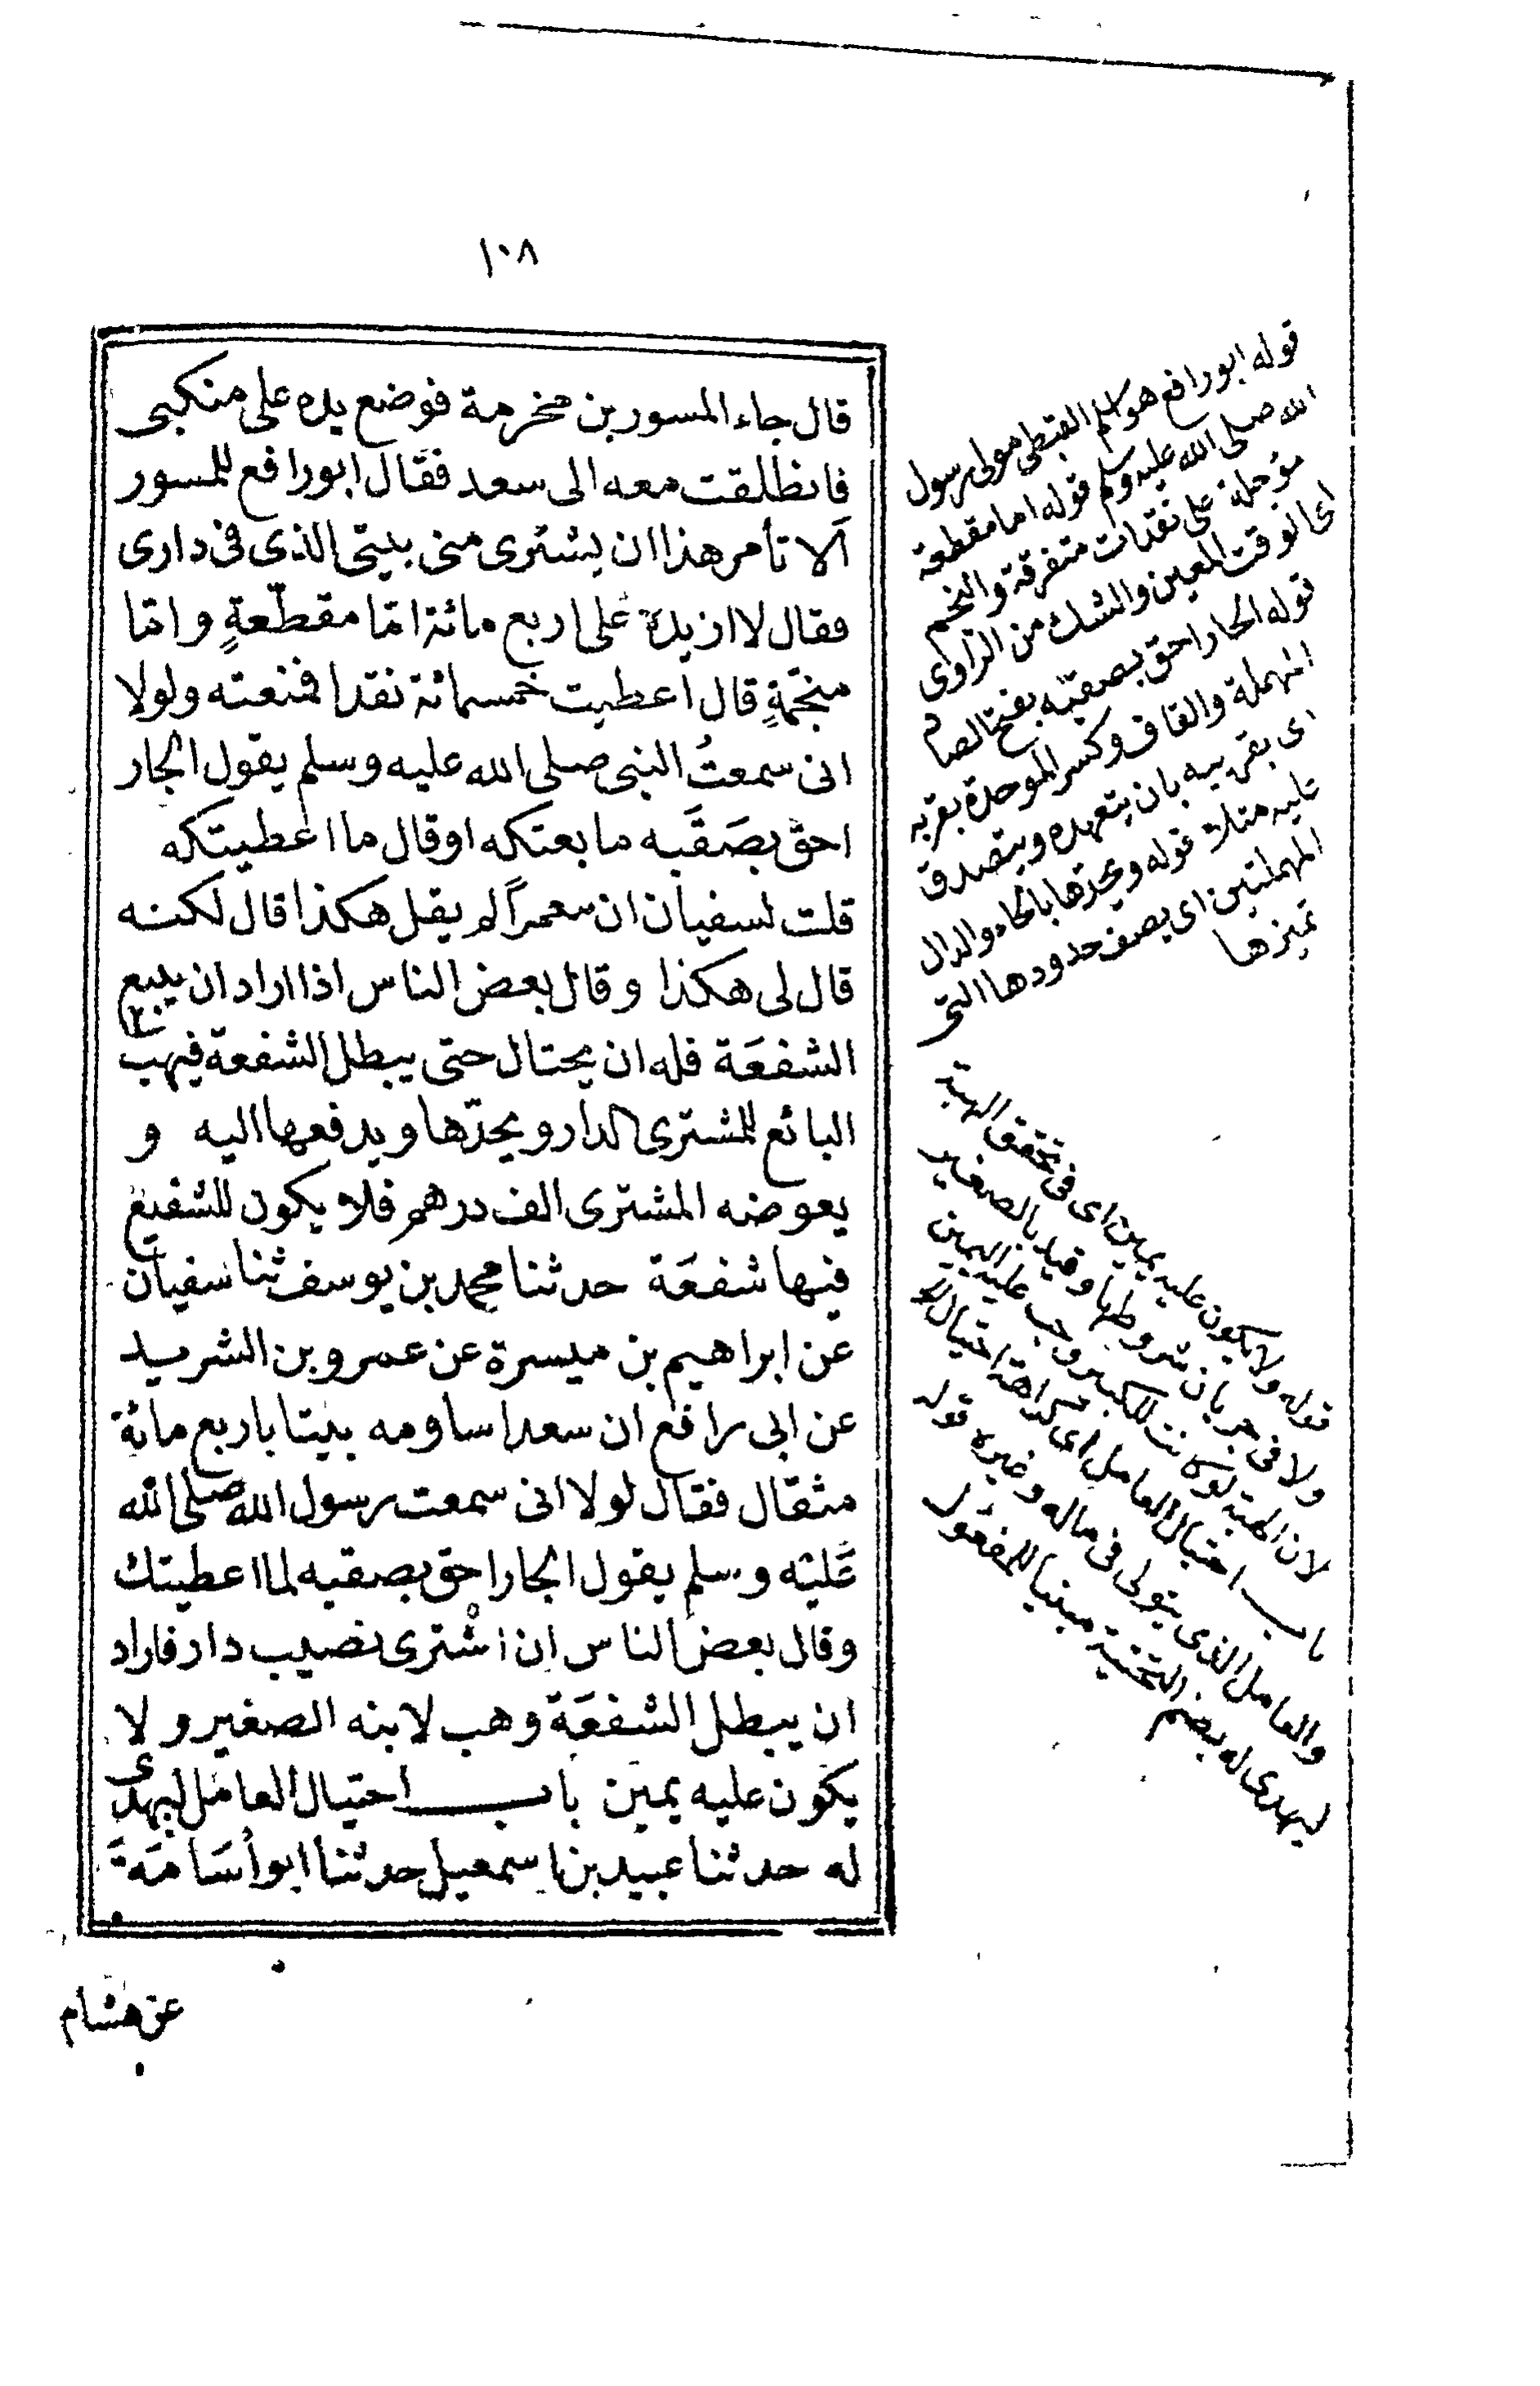 ١٠٨
قال جاء المسور بن مخرمة فوضع يده على منكبى
فانطلقت معه الى سعد فقال ابو رافع للمسور
ألا تأمر هذا ان يشترى منى بيتى الذى فى دارى
فقال لا ازيده على اربع مائة امّا مقطّعةٍ وامّا
منجّمةٍ قال اعطيت خمسمائة نقدا فمنعته ولولا
انى سمعتُ النبى صلى الله عليه وسلم يقول الجار
احقّ بصَقَبه ما بعتكه او قال ما اعطيتكه
قلت لسفيان ان معمراً لم يقل هكذا قال لكنه
قال لى هكذا وقال بعض الناس اذا اراد ان يبيع
الشفعَة فله ان يحتال حتى يبطل الشفعة فيهب
البائع للمشترى الدار ويحدّها ويدفعها اليه و
يعوضه المشترى الف درهم فلا يكون للشفيع
فيها شفعَة حدثنا محمد بن يوسف ثنا سفيان
عن ابراهيم بن ميسرة عن عمرو بن الشريد
عن ابى رافع ان سعدا ساومه بيتا باربع مائة
مثقال فقال لولا انى سمعت رسول الله صلى الله
عَليْه وسلم يقول الجار احق بصقبه لما اعطيتك
وقال بعض الناس ان اشترى نصيب دار فاراد
ان يبطل الشفعَة وهب لابنه الصغير ولا
يكون عليه يمين باب احتيال العامل ليهدى
له حدثنا عبيد بن اسمعيل حدثنا ابو أسَامَةَ
عن هشام
قوله ابو رافع هو اسلم القبطى مولى رسول
الله صلى الله عليه وسلم قوله اما مقطعة
مؤجلة على نقدات متفرقة والنجم
اى الوقت المعين والشك من الراوى
قوله الجار احق بصقبه بفتح الصاد
المهملة والقاف وكسر الموحدة بقربه
اى بقريبه بان يتعهده ويتصدق
عليه مثلا قوله ويحدّها بالحاء والدال
المهملتين اى يصف حدودها التى
تميزها
قوله ولا يكون عليه يمين اى فى تحقق الهبة
ولا فى جريان شروطها وقيد بالصغير
لان الهبة لو كانت للكبير وجب عليه اليمين
باب احتيال العامل اى كراهة احتيال
والعامل الذى يتولى فى ماله وغيره قوله
ليهدى له بضم التحتية مبنيا للمفعول